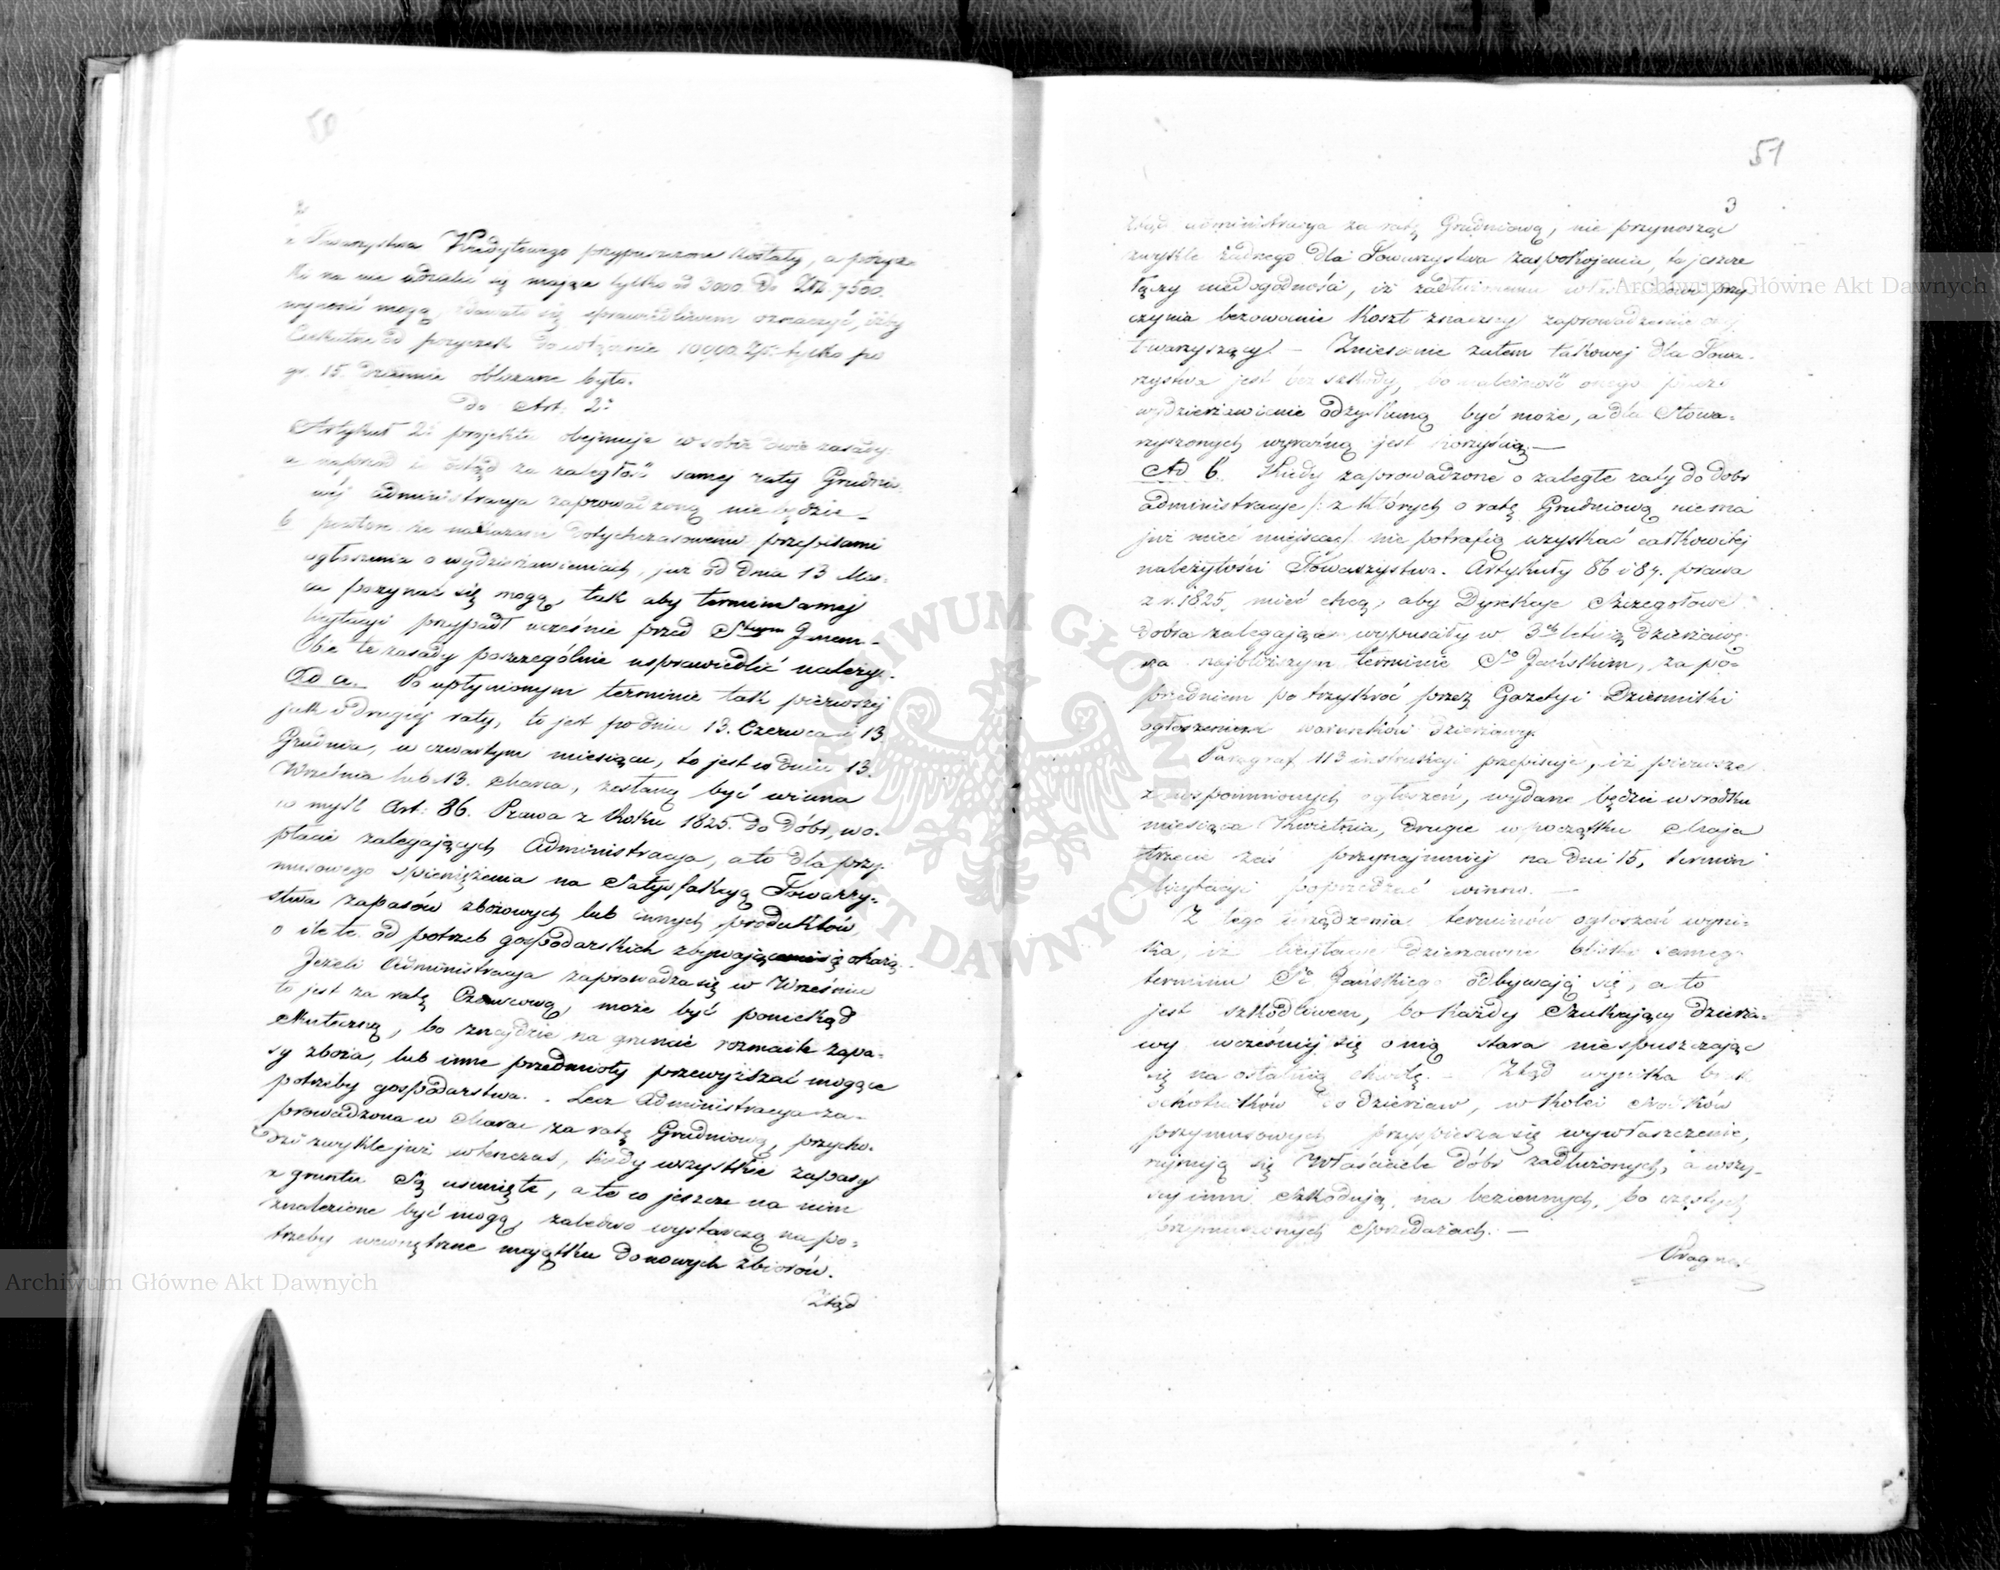 50
2
Towarzystwa Kredytowego przypuszczone zostały, a pożycz-
ki na nie udzielić się mające tylko od 3000. do Złp. 7500.
wynosić mogą, zdawało się sprawiedliwem oznaczyć, iżby
od pożyczek do włącznie 10000 Złp. tylko po
gr. 15. dziennie obliczane było.
do Art: 2º
Artykuł 2º projektu obejmuje w sobie dwie zasady:
a naprzód iż odtąd za zaległość samej raty Grudnio-
wej administracja zaprowadzoną nie będzie –
b powtóre że nakazane dotychczasowemi przepisami
ogłoszenia o wydzierżawieniach, już od dnia 13 Mar-
ca poczynać się mogą, tak aby termin samej
licytacyi przypadł wcześnie przed Stym Janem –
Obie te zasady poszczególnie usprawiedlić należy.
Ad a. Po upłynionym terminie tak pierwszej
jak i drugiej raty, to jest po dniu 13. Czerwca i 13
Grudnia, w czwartym miesiącu, to jest w dniu 13.
Września lub 13. Marca, zesłaną być winna
w myśl Art: 86. Prawa z Roku 1825. do dóbr, w o-
płacie zalegających Administracja, a to dla przy-
musowego spieniężenia na Satysfakcyą Towarzy-
stwa zapasów zbożowych lub innych produktów,
o ile te od potrzeb gospodarskich zbywającemi się okażą.
Jeżeli Administracja zaprowadza się w Wrześniu
to jest za ratę Czerwcową, może być poniekąd
skuteczną, bo znajdzie na gruncie rozmaite zapa-
sy zboża, lub inne przedmioty przewyższać mogące
potrzeby gospodarstwa. – Lecz Administracja za-
prowadzona w Marcu za ratę Grudniową, przycho-
dzi zwykle już wtenczas, kiedy wszystkie zapasy
z gruntu są usunięte, a to co jeszcze na nim
znalezione być mogą, zaledwo wystarczą na po-
trzeby wewnętrzne majątku do nowych zbiorów.
Ztąd
51
3
Ztąd administracja za ratę Grudniową, nie przynosząc
zwykle żadnego dla Towarzystwa zaspokojenia, tę jeszcze
łączy niedogodność, iż zadłużonemu przy
czynia bezowocnie koszt znaczny zaprowadzeniu
towarzyszący. – Zniesienie zatem takowej dla Towa-
rzystwa jest bez szkody, bo należność onego przez
wydzierżawienie odzyskaną być może, a dla Stowa-
rzyszonych wyraźną jest korzyścią. –
Ad b. Kiedy zaprowadzone o zaległe raty do dóbr
administracje /: z których o ratę Grudniową niema
już mieć miejsca :/ nie potrafią uzyskać całkowitej
należytości Towarzystwa. Artykuły 86 i 87. prawa
z r. 1825. mieć chcą, aby Dyrekcje Szczegółowe
dobra zalegające wypuszczały w 3ch letnią dzierżawę
na najbliższym terminie So Jańskim, za po-
przedniem po trzykroć przez Gazety i Dzienniki
ogłoszeniem warunków dzierżawy.
Paragraf 113 instrukcyi przepisuje, iż pierwsze
z wspomnionych ogłoszeń, wydane będzie w środku
miesiąca Kwietnia, drugie w początku Maja
trzecie zaś przynajmniej na dni 15, termin
licytacyi poprzedzać winno. –
Z tego urządzenia terminów ogłoszeń wyni-
ka, iż licytacje dzierżawne blisko samego
terminu So Jańskiego odbywają się, a to
jest szkodliwem, bo każdy szukający dzierża-
wy wcześniej się o nią stara nie spuszczając
się na ostatnią chwilę. – Ztąd wynika brak
ochotników do dzierżaw, w kolei środków
przymusowych przyspiesza się wywłaszczenie,
rujnują się Właściciele dóbr zadłużonych, a wszy-
scy inni szkodują na bezcennych, bo częstych
przymuszonych sprzedażach. –
Pragnąc
Archiwum Główne Akt Dawnych
Archiwum Główne Akt Dawnych
ARCHIWUM GŁÓWNE AKT DAWNYCH